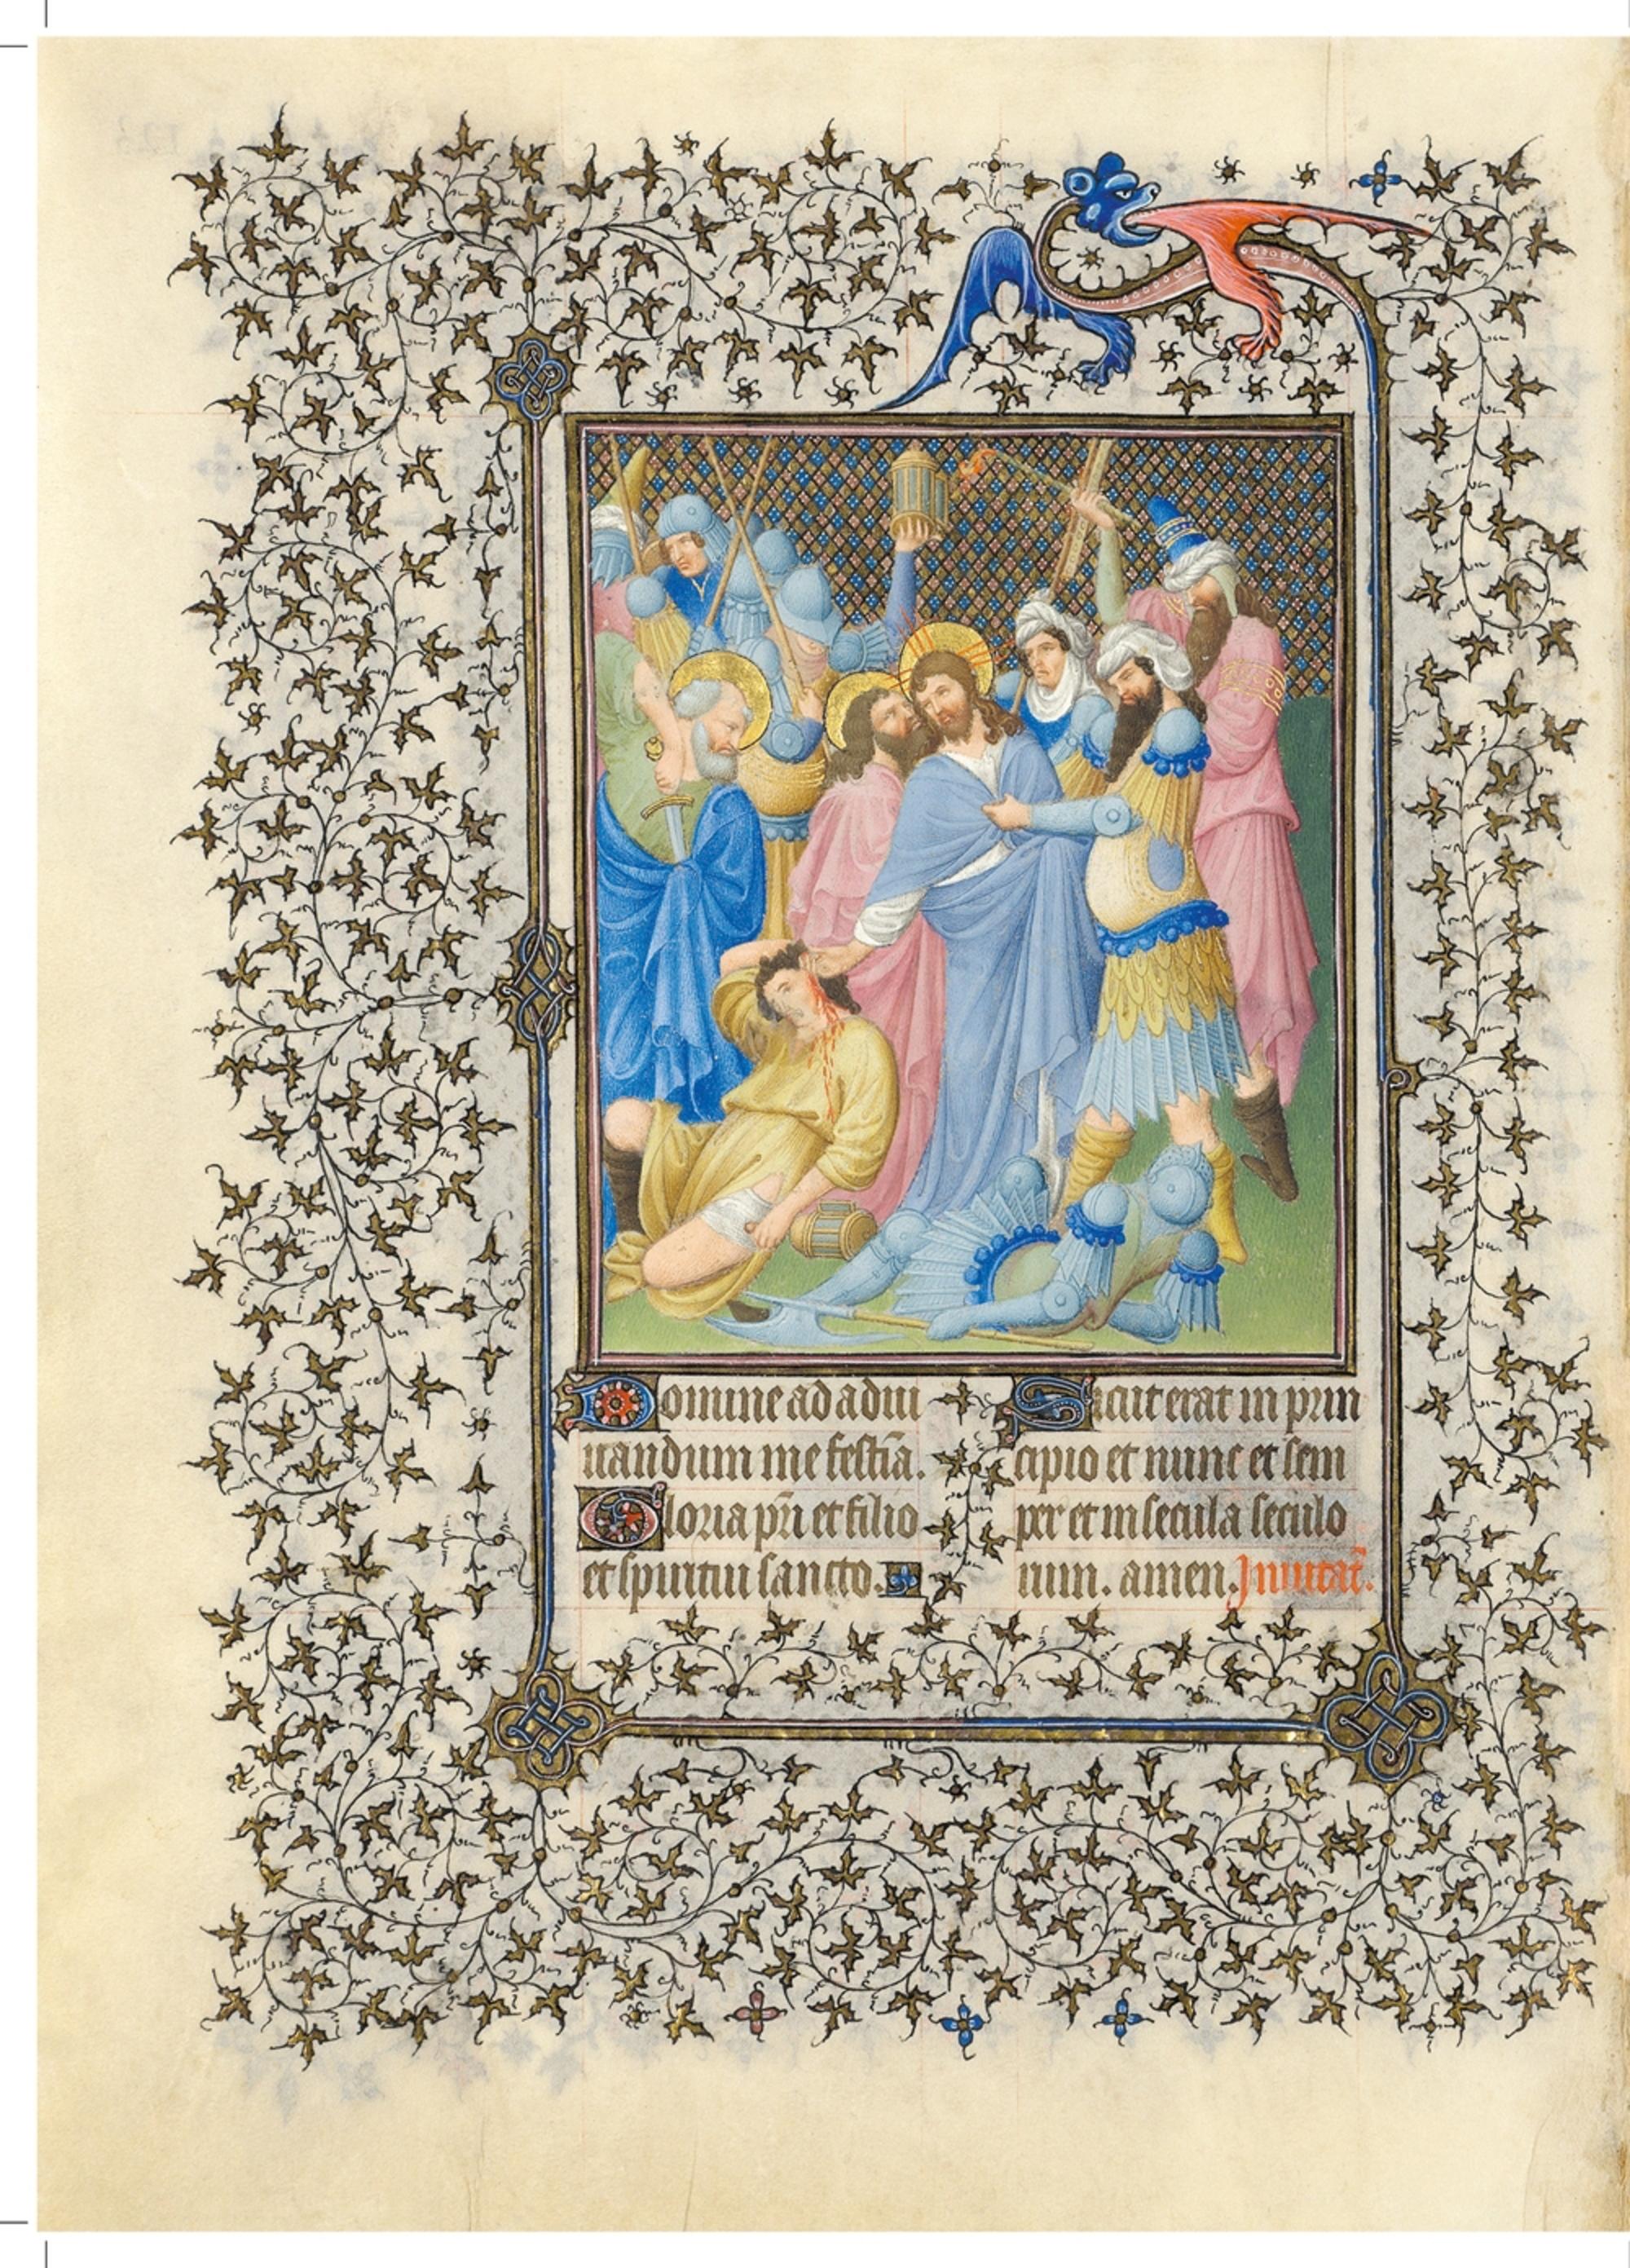 Domine ad adiu
uandum me festīa.
Gloria pr̄i et filio
et spiritui sancto.
Sicut erat in prin
cipio et nunc et sem
per et in secula seculo
rum. amen. Inuitat̄.